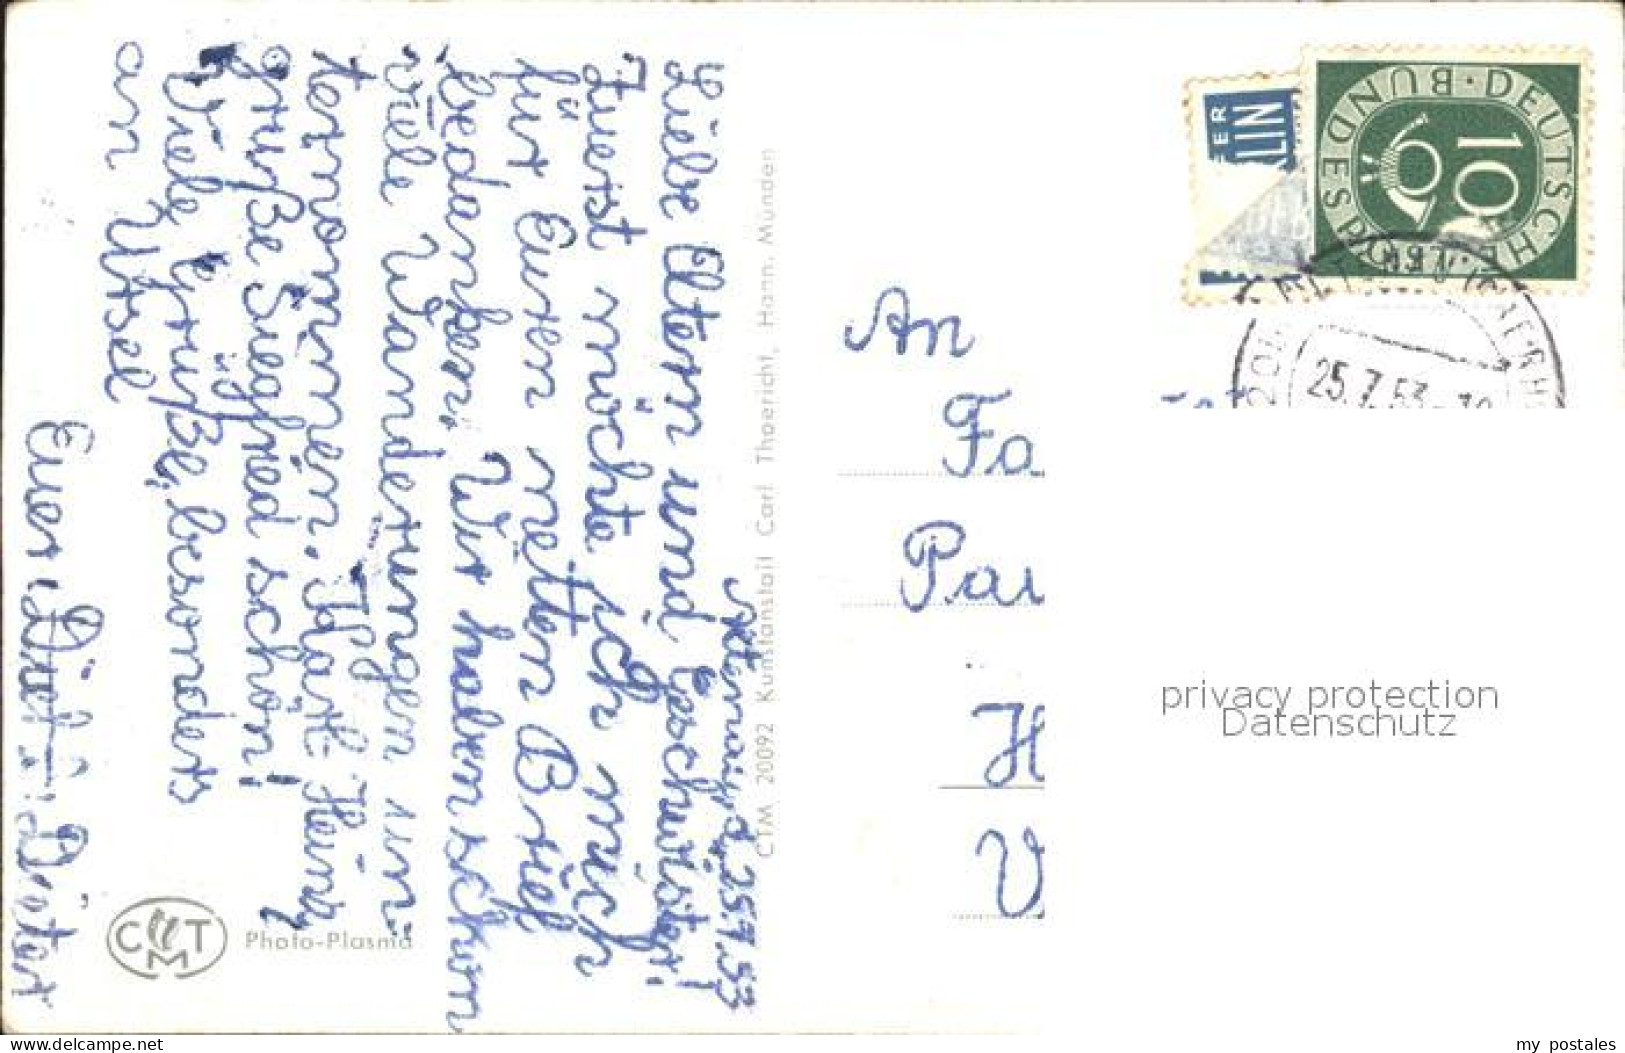 Altenau, d. 25.7.53
Liebe Eltern und Geschwister!
Zuerst möchte ich mich
für Euren netten Brief
bedanken. Wir haben schon
viele Wanderungen un-
ternommen. Karl-Heinz
grüße Siegfried schön!
Viele Grüße, besonders
an Ursel
Euer Dieter
CTM 20092 Kunstanstalt Carl Thoericht, Hann. Münden
CMT
Photo-Plasma
DEUTSCHE BUNDESPOST
10
25.7.53
An
Fa
Pau
H
V
privacy protection
Datenschutz
www.delcampe.net
my_postales